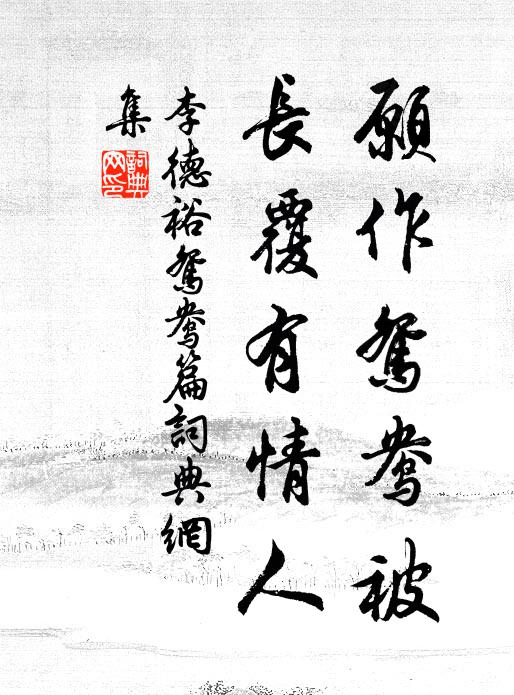 願作鴛鴦被
長覆有情人
李德裕鴛鴦篇詞典網
集
詞典
网印